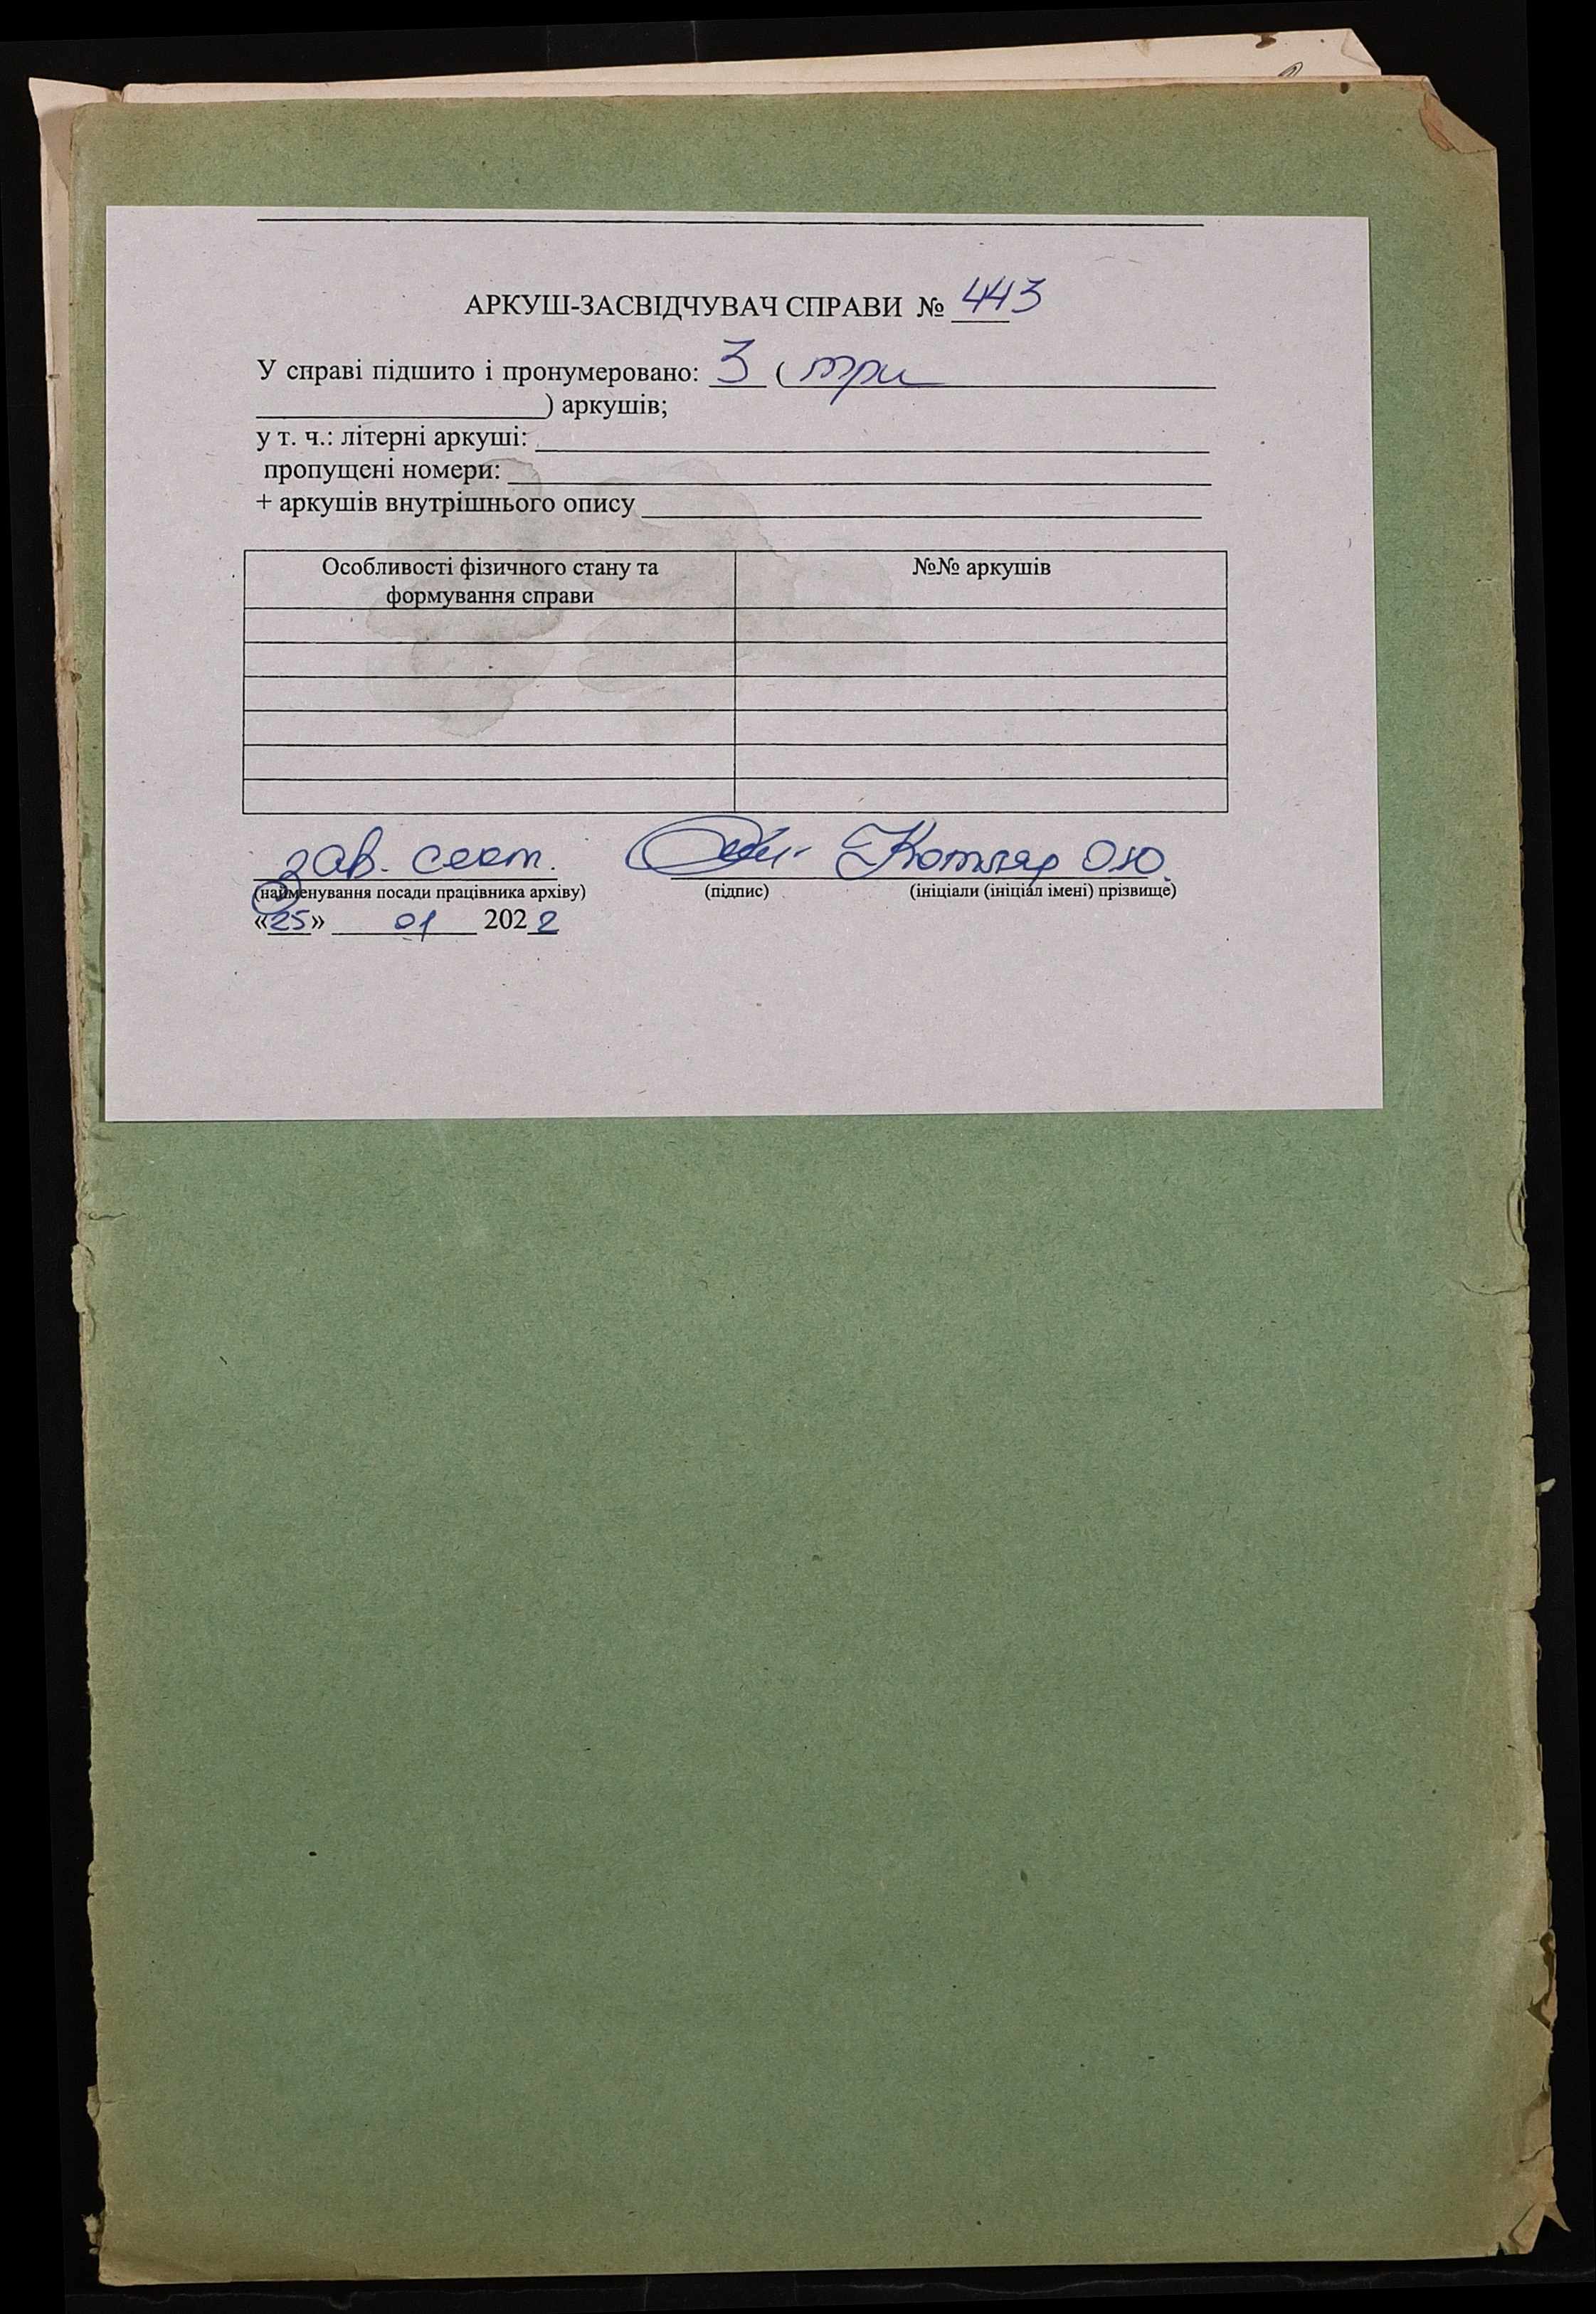 АРКУШ-ЗАСВІДЧУВАЧ СПРАВИ № 443
У справі підшито і пронумеровано: 3 ( три
) аркушів;
у т. ч.: літерні аркуші:
пропущені номери:
+ аркушів внутрішнього опису
Особливості фізичного стану та формування справи
№№ аркушів
зав. сект. Котляр О.Ю.
(найменування посади працівника архіву) (підпис) (ініціали (ініціал імені) прізвище)
«25» 01 2022